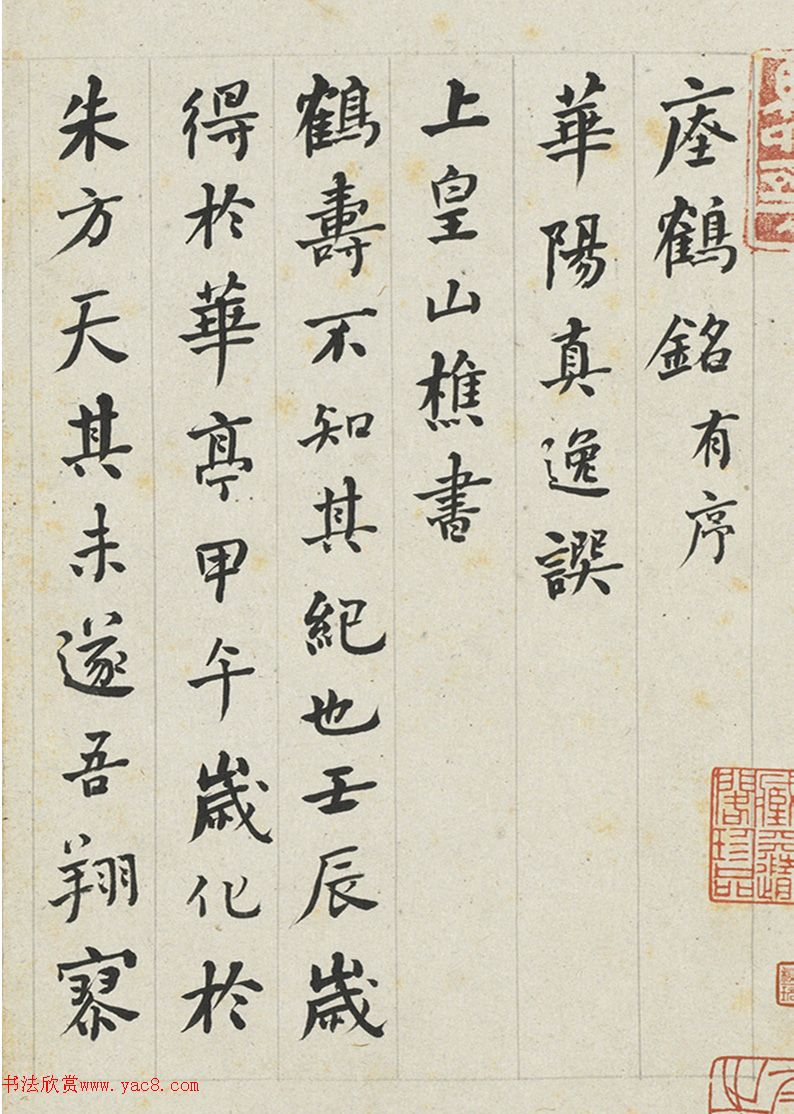 瘞鶴銘有序
華陽真逸譔
上皇山樵書
鶴壽不知其紀也壬辰歲
得於華亭甲午歲化於
朱方天其未遂吾翔寥
书法欣赏www.yac8.com